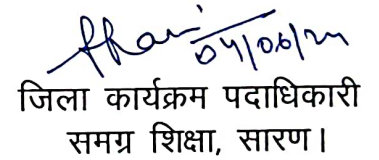 04/06/24
जिला कार्यक्रम पदाधिकारी
समग्र शिक्षा, सारण।